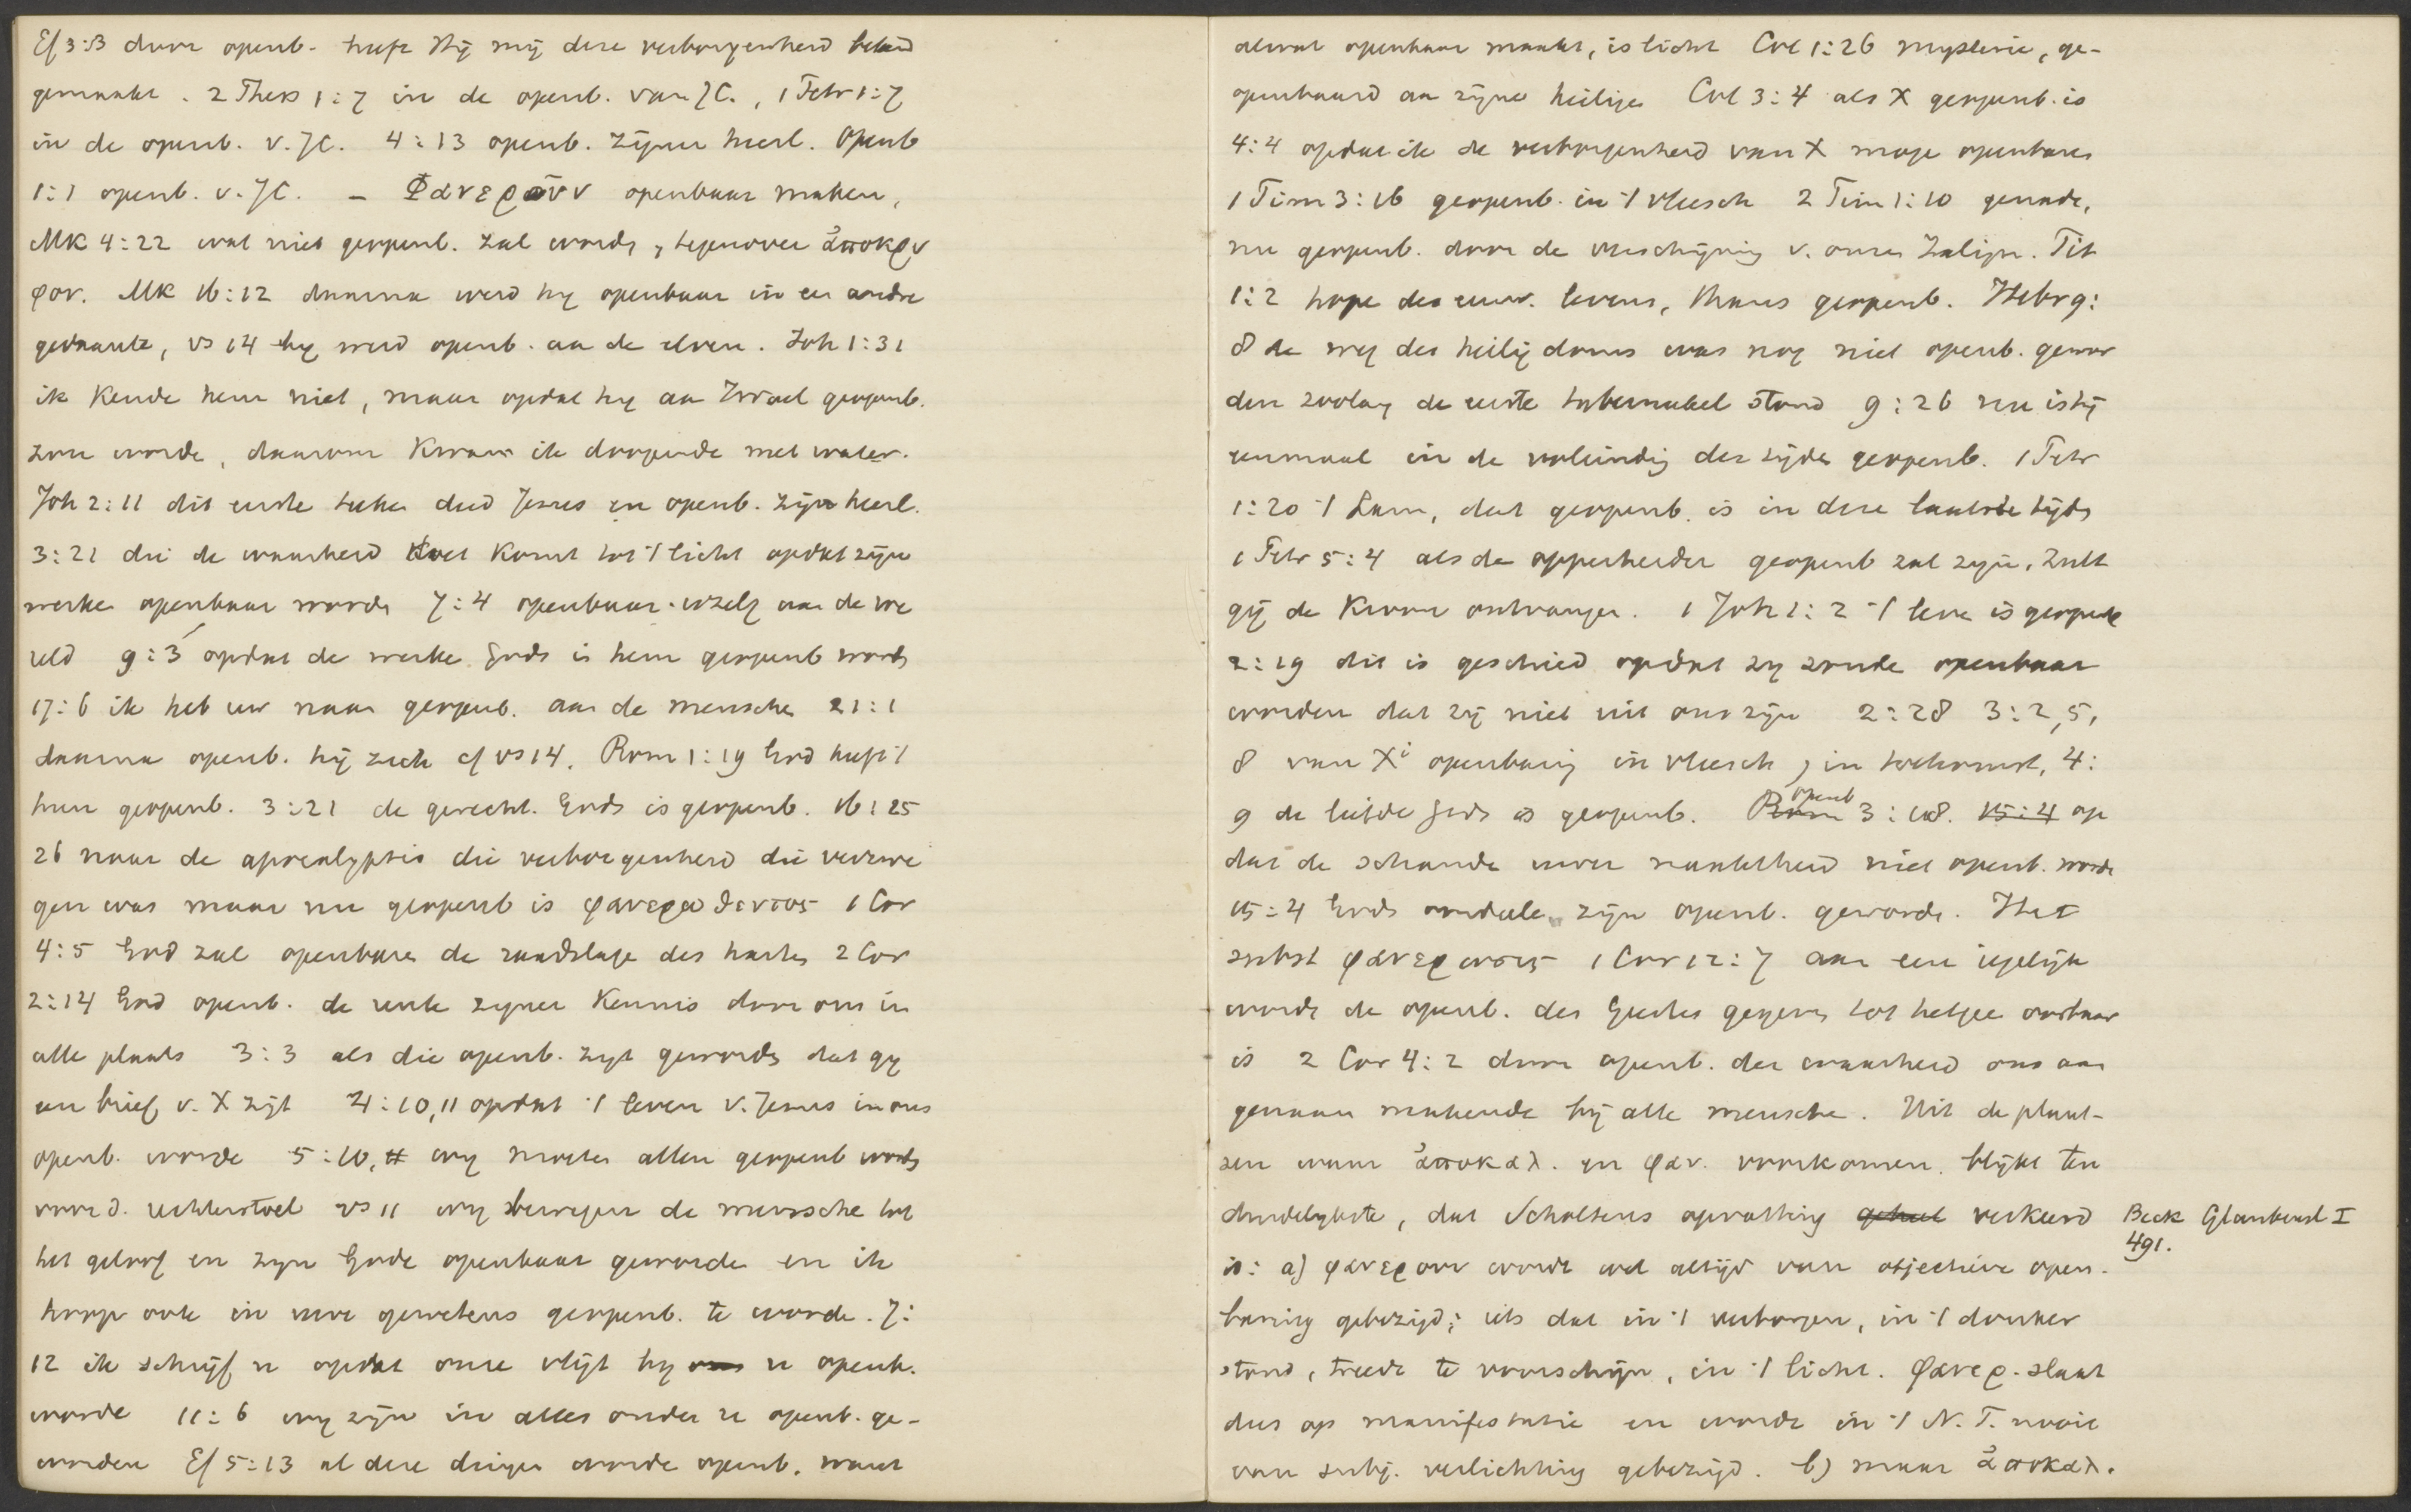 Ef 3:3 door openb. heeft Hij mij deze verborgenheid bekend
gemaakt. 2 Thess 1:7 in de openb. van JC., 1 Petr 1:7
in de openb. v. JC. 4:13 openb. zijner heerl. Openb
1:1 openb. v. JC. – Φανεροῦν openbaar maken,
MK 4:22 wat niet geopenb. zal worde, tegenover ἀποκρυ
φον. MK 16:12 daarna werd hy openbaar in een andre
gedaante, vs 14 hy werd openb. aan de elven. Joh 1:31
ik kende hem niet, maar opdat hy aan Israel geopenb.
zou worde, daarom kwam ik doopende met water.
Joh 2:11 dit eerste teeken deed Jezus en openb. zijn heerl.
3:21 die de waarheid doet komt tot 't licht opdat zijne
werken openbaar worde 7:4 openbaar uzelf aan de we
reld 9:3 opdat de werke Gods in hem geopenb worde
17:6 ik heb uw naam geopenb. aan de mensche 21:1
daarna openb. hij zich cf vs 14. Rom 1:19 God heeft 't
hun geopenb. 3:21 de gerecht. Gods is geopenb. 16:25
26 naar de apocalypsis die verborgenheid die verzwe
gen was maar nu geopenb is φανερωθεντος 1 Cor
4:5 God zal openbare de raadslage des harten 2 Cor
2:14 God openb. de reuke zyner kennis door ons in
alle plaats 3:3 als die openb. zyt geworde dat gy
een brief v. X zijt 4:10,11 opdat 't leven v. Jezus in ons
openb. worde 5:10, 11 wy moeten allen geopenb worde
voor d. rechterstoel vs 11 wy bewegen de menssche tot
het geloof en zyn Gode openbaar geworde en ik
hoop ook in uwe gewetens geopenb. te worde. 7:
12 ik schrijf u opdat onze vlijt by ons u openb.
worde 11:6 wy zijn in alles onder u openb. ge-
worden Ef 5:13 al deze dinge worde openb. want
alwat openbaar maakt, is licht Col 1:26 mysterie, ge-
openbaard aan zijne heilige Col 3:4 als X geopenb. is
4:4 opdat ik de verborgenheid van X moge openbare
1 Tim 3:16 geopenb. in 't vleesch 2 Tim 1:10 genade,
nu geopenb. door de verschijning v. onze Zaligm. Tit
1:2 hope des eeuw. levens, thans geopenb. Hebr 9:
8 de weg des heiligdoms was nog niet openb. gewor
den zoolang de eerste tabernakel stond 9:26 nu is hij
eenmaal in de voleindig der tijde geopenb. 1 Petr
1:20 't Lam, dat geopenb. is in deze laatste tijde
1 Petr 5:4 als de opperherder geopenb zal zyn, zult
gij de kroon ontvangen. 1 Joh 1:2 't leve is geopenb
2:19 dit is geschied opdat zy zoude openbaar
worden dat zij niet uit ons zijn 2:28 3:2,5,
8 van Xi openbaring in vleesch, in toekomst, 4:
9 de liefde Gods is geopenb. Rom openb 3:18. 15:4 op
dat de schande uwer naaktheid niet openb. worde
15:4 Gods oordeele zijn openb. geworde. Het
subst φανερωσις 1 Cor 12:7 aan een iegelijk
wordt de openb. des Geestes gegeven tot hetgee oorbaar
is 2 Cor 4:2 door openb. der waarheid ons aan
genaam makende bij alle mensche. Uit de plaat-
sen waar ἀποκαλ. en φαν. voorkomen. blijkt ten
duidelykste, dat Scholtens opvatting geheel verkeerd
is: a) φανερουν wordt wel altijd van objectieve open-
baring gebezigd; iets dat in 't verborgen, in 't donker
stond, treedt te voorschijn, in 't licht. φανερ. slaat
dus op manifestatie en wordt in 't N. T. nooit
van subj. verlichting gebezigd. b) maar ἀποκαλ.
Beck Glaubensl I
491.